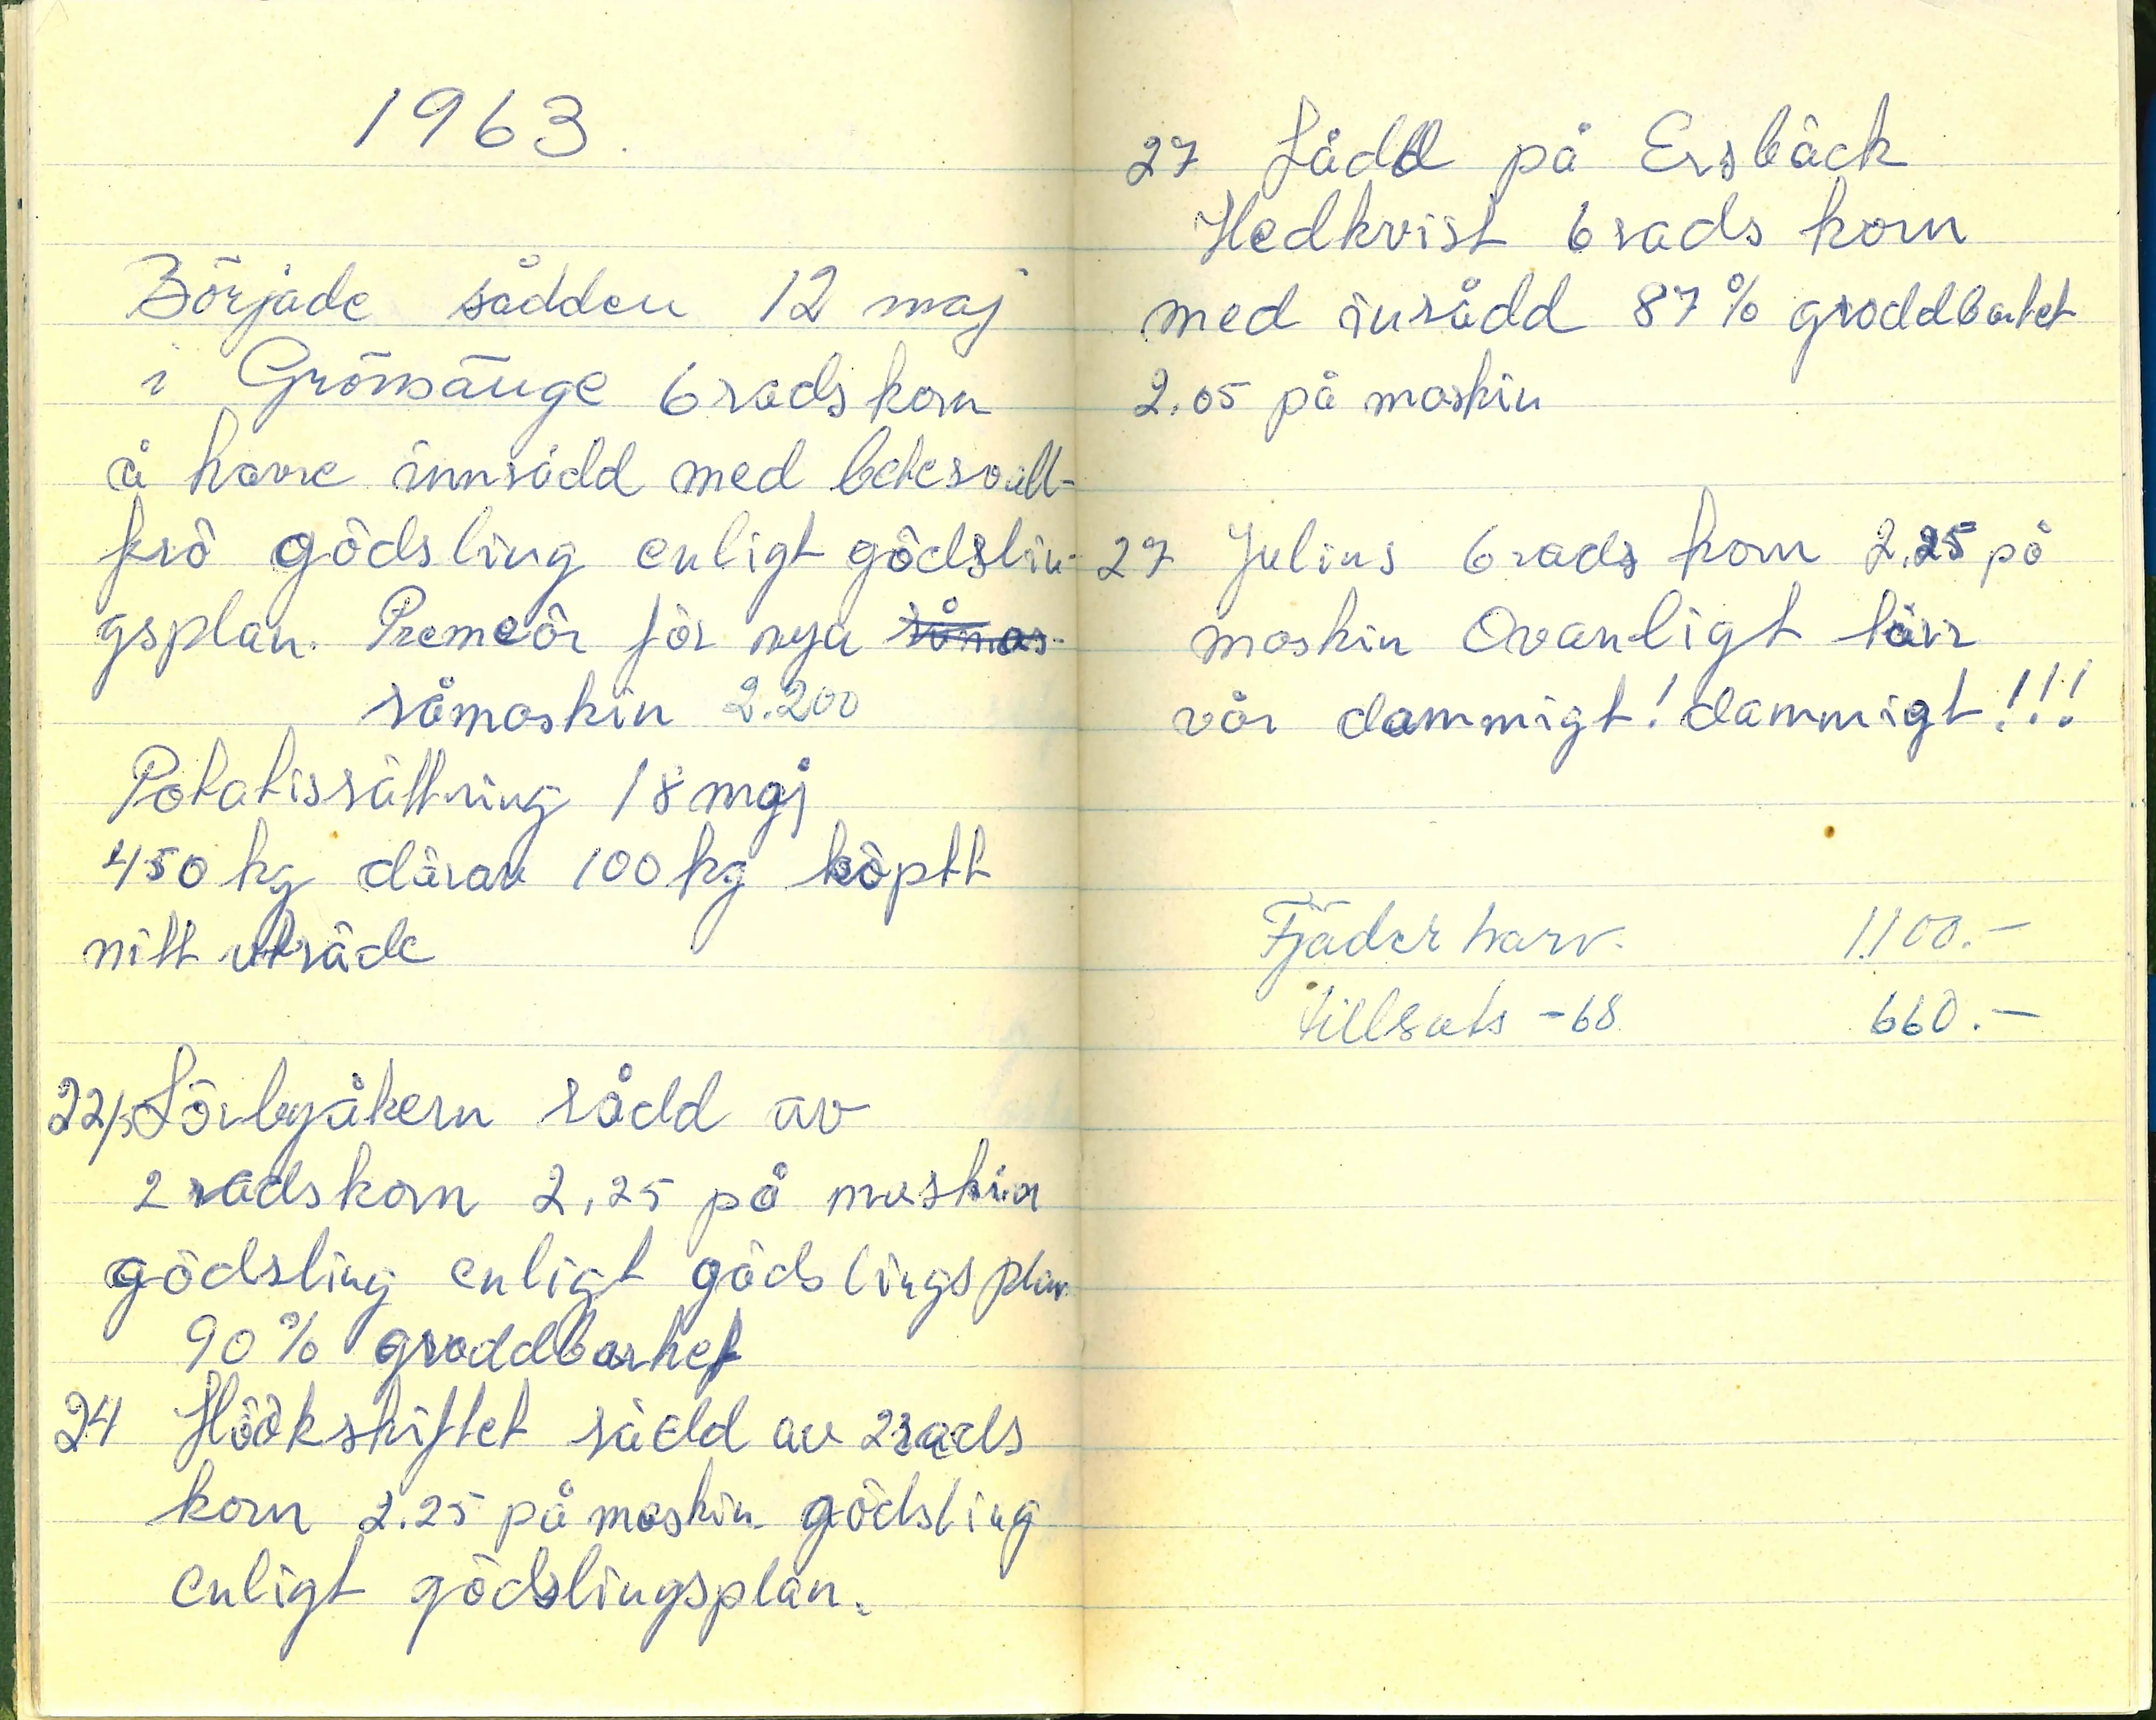 1963.
Började sådden 12 maj
i Grönsänge 6radskorn
å havre innsådd med betesvall-
frö gödsling enligt gödslin-
gsplan. Premeör för nya såmas-
såmaskin 2.200
Potatissättning 18 maj
450 kg därav 100 kg köptt
nitt utsäde
22/5 Sörbyåkern sådd av
2 radskorn 2,25 på maskin
gödsling enligt gödslingsplan
90 % groddbarhet
24 Höökskiftet sådd av 2rads
korn 2.25 på maskin gödsling
enligt gödslingsplan.
27 Sådd på Ersbäck
Hedkvist 6 rads korn
med insådd 87 % groddbarhet
2.05 på maskin
27 Julius 6 rads korn 2.25 på
maskin Ovanligt torr
vår dammigt! dammigt!!!
Fjäderharv. 1100.-
tillsats -68 660.-